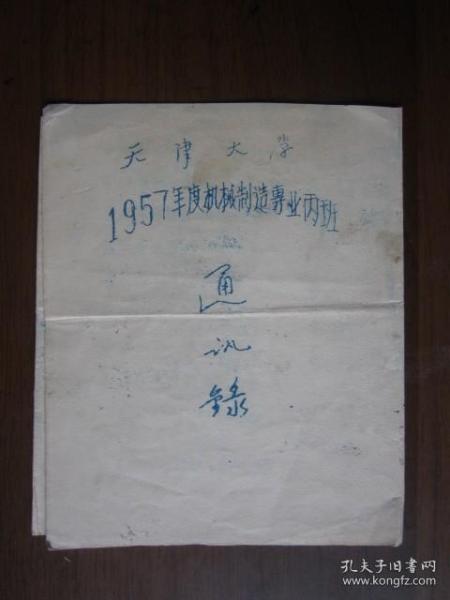 天津大学
1957年度机械制造專业丙班
通
讯
錄
孔夫子旧书网
www.kongfz.com